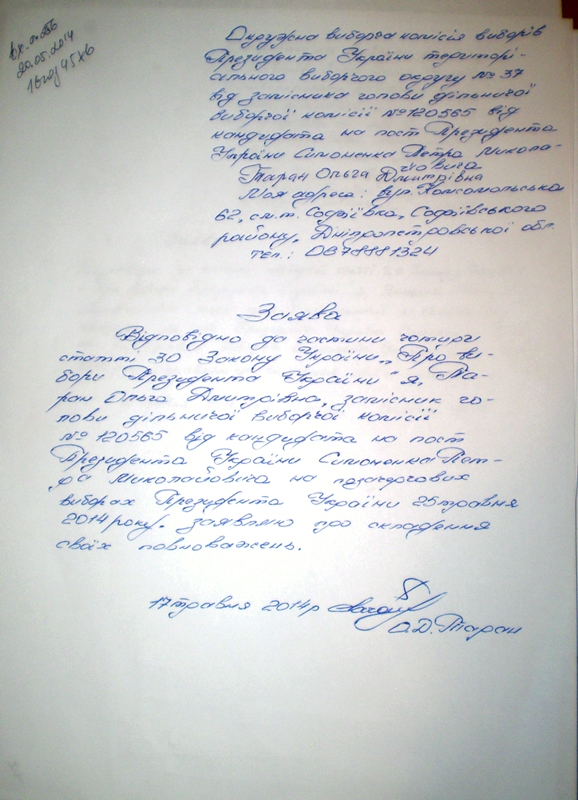 Вх. № 256
20.05.2014
16 год 45 хв
Окружна виборча комісія виборів
Президента України територі-
ального виборчого округу № 37
від заступника голови дільничої
виборчої комісії № 120565 від
кандидата на пост Президента
України Симоненка Петра Микола-
йовича
Таран Ольга Дмитрівна
Моя адреса: вул. Комсомольська
62, см.т. Софіївка, Софіївського
району, Дніпропетровської обл.
тел.:
Заява
Відповідно до частини чотири
статті 30 Закону України „Про ви-
бори Президента України" я, Та-
ран Ольга Дмитрівна, заступник го-
лови дільничої виборчої комісії
№ 120565 від кандидата на пост
Президента України Симоненка Пет-
ра Миколайовича на позачергових
виборах Президента України 25 травня
2014 року. заявляю про складення
своїх повноважень.
17 травня 2014 р
О.Д. Таран